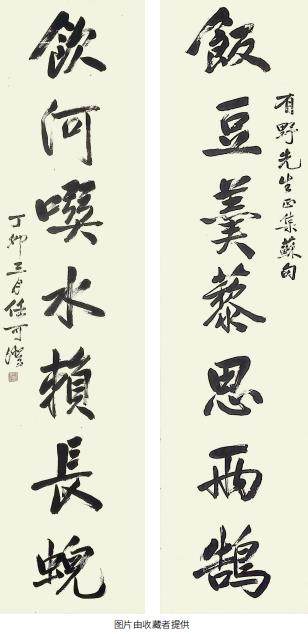 有野先生正集蘇句
飯豆羹藜思兩鵠
飲河噀水賴長蜺
丁卯三月任可澄
图片由收藏者提供